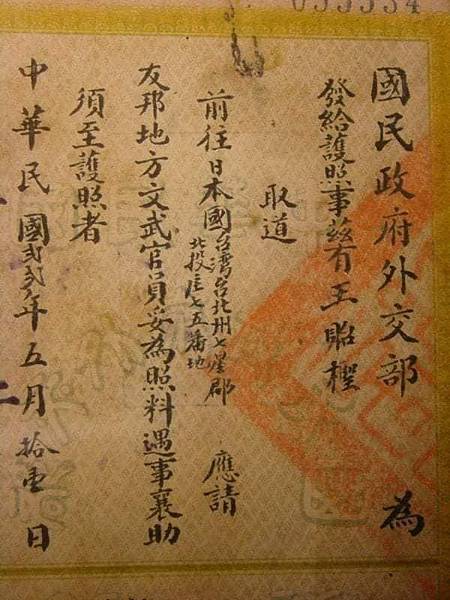 國民政府外交部 為
發給護照事茲有王昭
取道
前往日本國台灣台北州七星郡
北投庄七五番地
應請
友邦地方文武官員妥為照料遇事襄助
須至護照者
中華民國貳貳年五月拾壹日